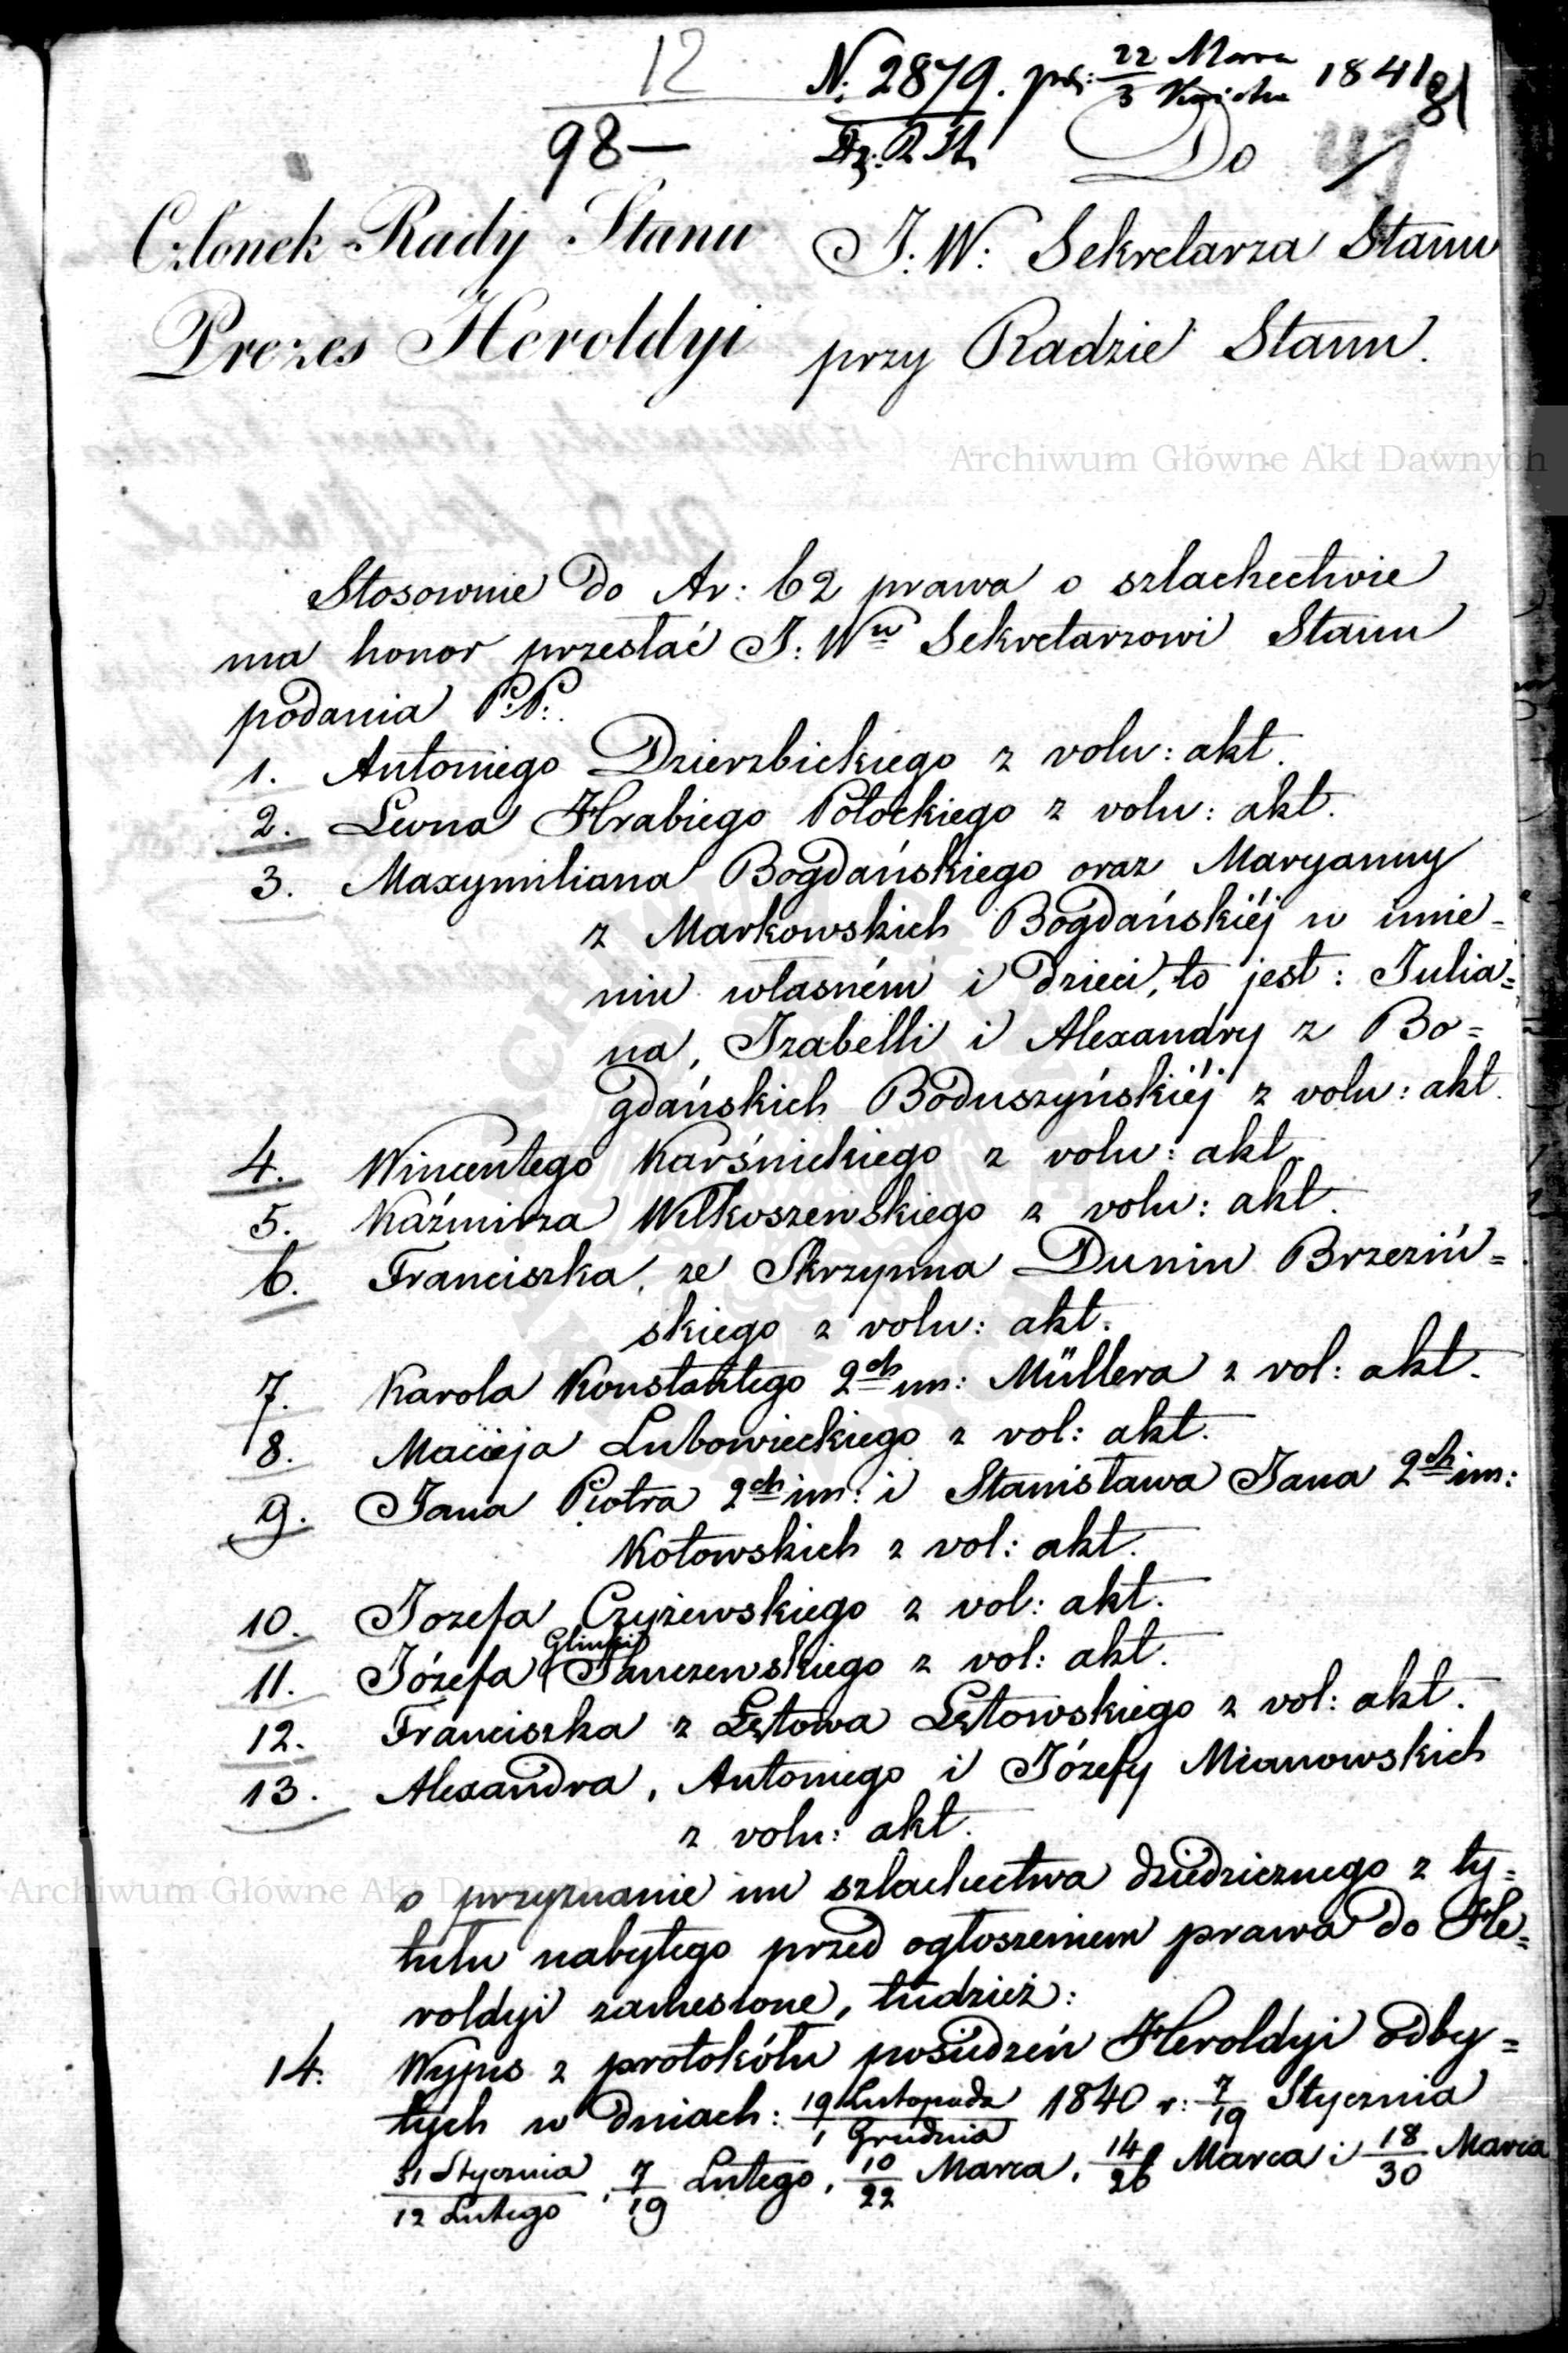 12
98 —
N. 2879. 22 Marca / 3 Kwietnia 1841
81
Do
Członek Rady Stanu
Prezes Heroldyi
J: W: Sekretarza Stanu
przy Radzie Stanu.
Archiwum Główne Akt Dawnych
Stosownie do Ar: 62 prawa o szlachectwie
ma honor przesłać J: Wu Sekretarzowi Stanu
podania P.P.:
1. Antoniego Dzierzbickiego z volu: akt.
2. Leona Hrabiego Potockiego z volu: akt.
3. Maxymiliana Bogdańskiego oraz Maryanny
z Markowskich Bogdańskiéj w imie-
niu własném i dzieci, to jest: Julia=
na, Izabelli i Alexandry z Bo=
gdańskich Boduszyńskiéj z volu: akt.
4. Wincentego Karśnickiego z volu: akt.
5. Kaźmirza Wilkoszewskiego z volu: akt.
6. Franciszka, ze Skrzynna Dunin Brzeziń=
skiego z volu: akt.
7. Karola Konstantego 2ch im: Müllera z vol: akt.
8. Macieja Lubowieckiego z vol: akt.
9. Jana Piotra 2ch im: i Stanisława Jana 2ch im:
Kotowskich z vol: akt.
10. Jozefa Czyżewskiego z vol: akt.
Glinki
11. Józefa Janczewskiego z vol: akt.
12. Franciszka z Łętowa Łętowskiego z vol: akt.
13. Alexandra, Antoniego i Józefy Mianowskich
z volu: akt.
o przyznanie im szlachectwa dziedzicznego z ty=
Archiwum Główne Akt Dawnych
tułu nabytego przed ogłoszeniem prawa do He=
roldyi zaniesione, tudzież:
14. Wypis z protokółu posiedzeń Heroldyi odby=
tych w dniach: 19 Listopada / 1 Grudnia 1840 r: 7/19 Stycznia
31 Stycznia / 12 Lutego, 7/19 Lutego, 10/22 Marca, 14/26 Marca i 18/30 Marca